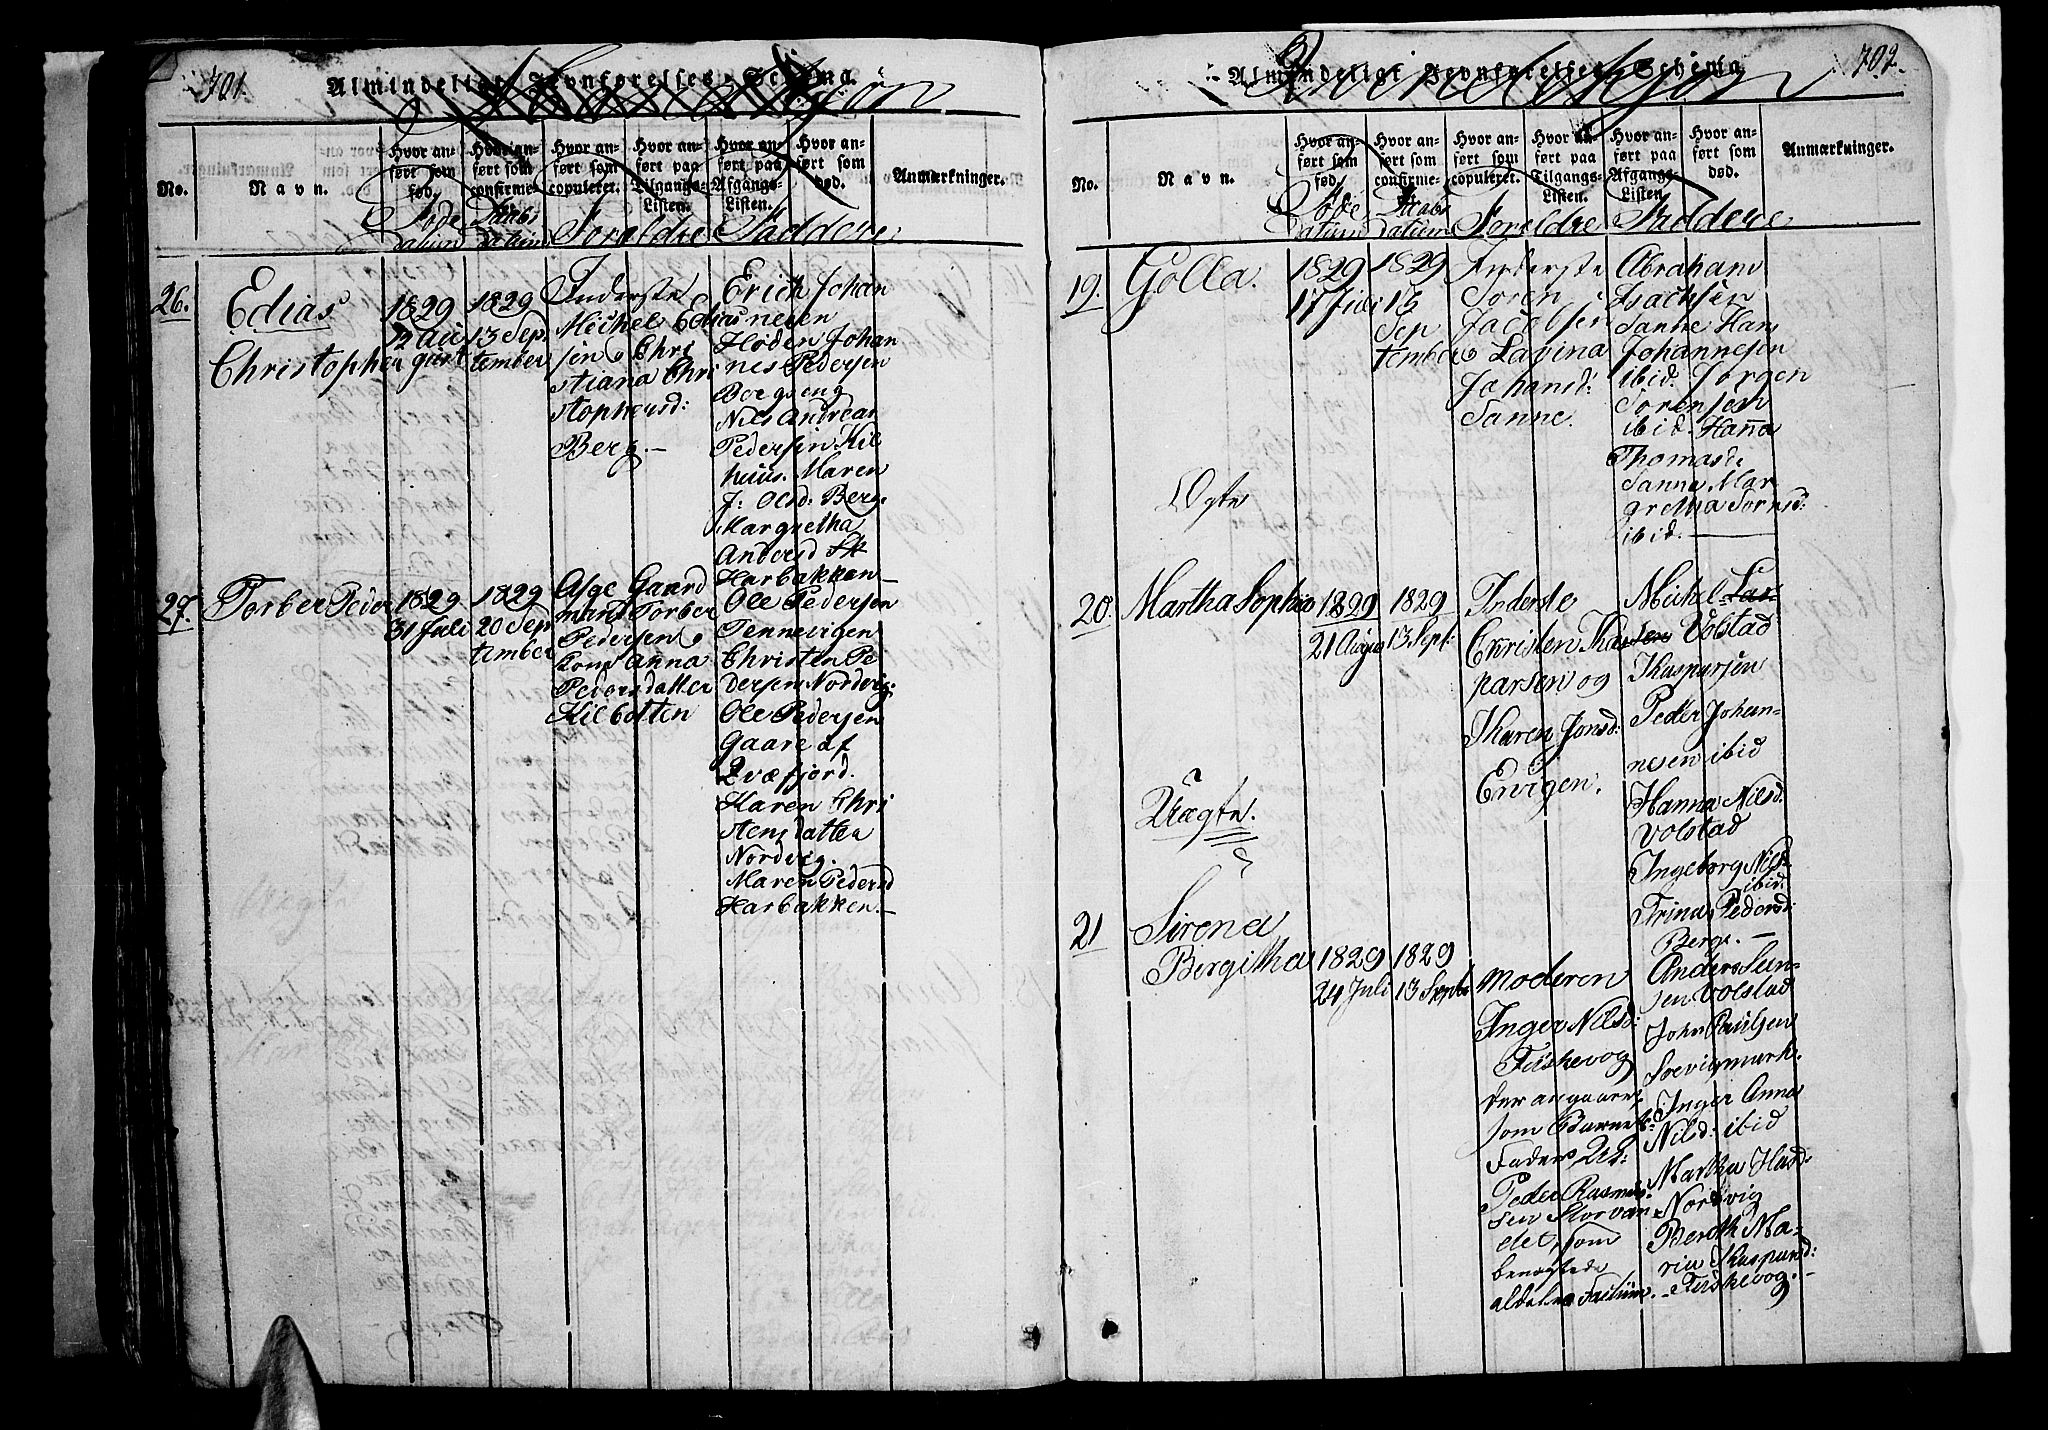 701.
Almindeligt Jevnførelses-Schema.
Kjøn
No.
Navn.
Hvor anført som fød.
Hvor anført som confirmeret.
Hvor anført som copuleret.
Hvor anført paa Tilgangs-Listen.
Hvor anført paa Afgangs-Listen.
Hvor anført som død.
Anmærkninger.
Føde
datum
Daabs
datum
Foreldre
Faddere
26.
Edias
Christopher
1829
gust
1829
13 Sep
tember
Inderste
Michel Edias
sen o Chri
stiana Chri
stophersd:
Berg.—
Erich Johan
nesen
Høden Johan
nes Pedersen
Bergseng
Nils Andreas
Pedersen Kil
huus. Maren
J: Olsd: Berg.
Margretha
Andersd
Harbakken—
27.
Torber Peder
1829
31 Juli
1829
20 Sep
tember
Afge Gaard
mand Torber
Pedersen o
Kone Anna
Pedersdatter
Kilbotten
Ole Pedersen
Tennevigen
Christen Pe
dersen Nordvig:
Ole Pedersen
Gaare af
Qvæfjord.
Karen Chri
stensdatter
Nordvig.
Maren Pedersd
Harbakken.—
702.
Almindeligt Jevnførelses-Schema
Qvindekjøn
No.
Navn.
Hvor anført som fød.
Hvor anført som confirmeret.
Hvor anført som copuleret.
Hvor anført paa Tilgangs-Listen.
Hvor anført paa Afgangs-Listen.
Hvor anført som død.
Anmærkninger.
Føde
datum
Daabs
datum
Foreldre
Faddere
19.
Golla.
Ægte
1829
17 Juli
1829
13
Sep
tember
Inderste
Søren
Jacobsen
o Lavina
Johansd:
Sanne.
Abraham
Isachsen
Sanne Hans
Johannesen
ibid. Jørgen
Sørensen
ibid. Hanna
Thomasd:
Sanne Mar
gretha Sørnsd:
ibid.—
20.
Martha Sophia
Uægte.
1829
21 August
1829
13 Sept:
Inderste
Christen Kas
parsen og
Karen Jonsd:
Ervigen.
Michel Lar-
sen Volstad
Kaspersen
Peder Johan-
nesen ibid
Hanna Nilsd.
Volstad
Ingeborg Nilsd.
ibid.
Trina Pedersd:
Berge.—
21
Sirena
Bergitha
1829
24 Juli
1829
13 Septb
Moderen
Inger Nilsd:
Fiskevog
der angaar
som Barnets
Fader U:
Peder Rasmus
sen Storvan
det, som
benægtede
aldeles Factum.
Anders
sen Volstad
John Paulsen
Soevigmark.
Inger Anna
Nilsd: ibid
Martha Had
Nordvig
Berith Ma-
ria Kaspersd:
Fiskevog.—